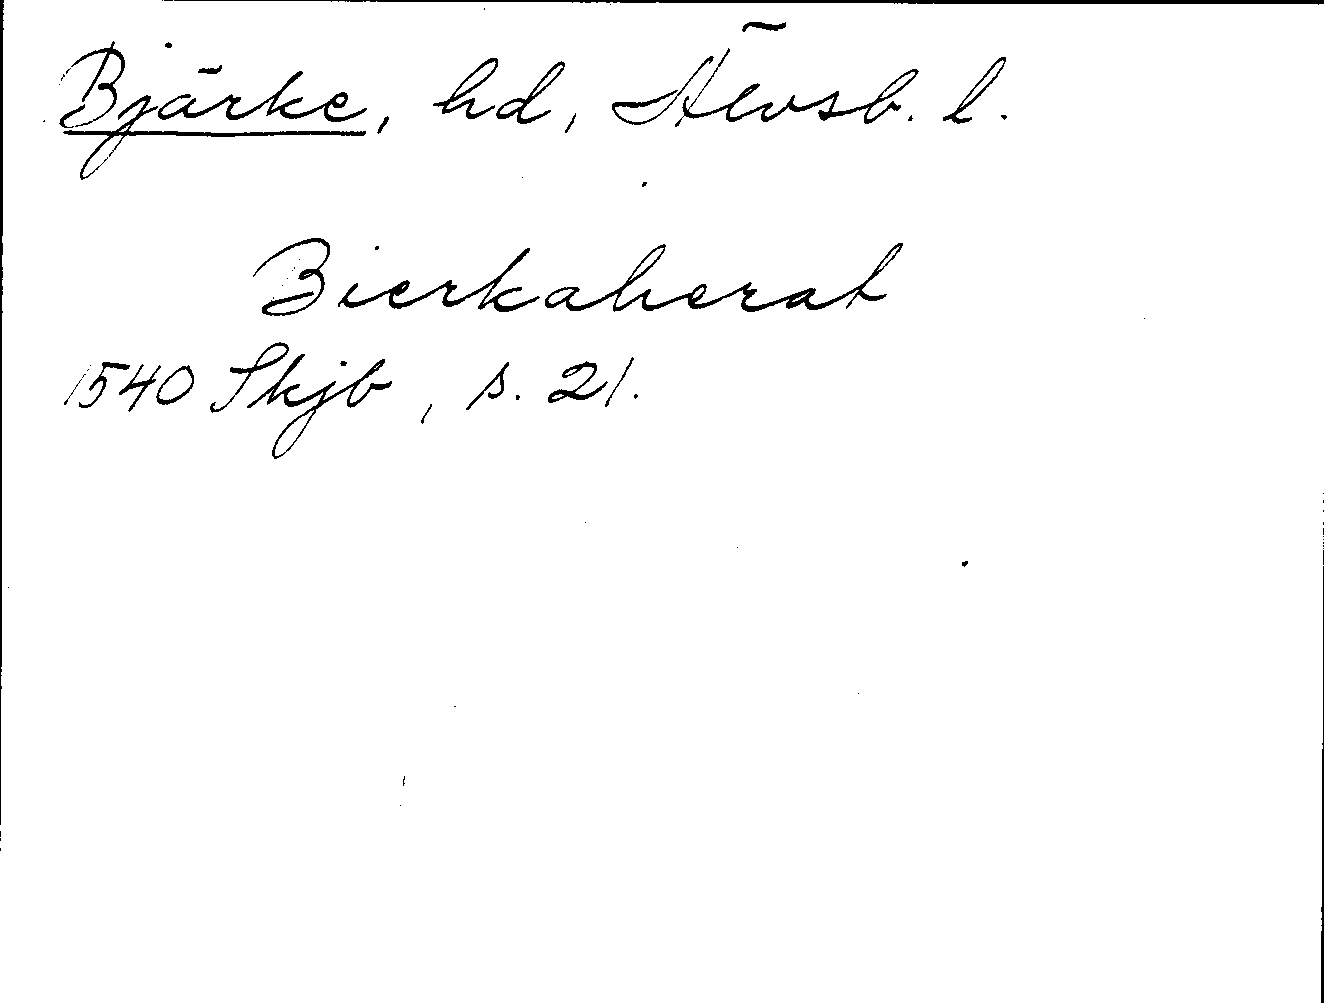 Bjärke, hd, Älvsb. l.
Bierkaherat
1540 Skjb, s. 21.